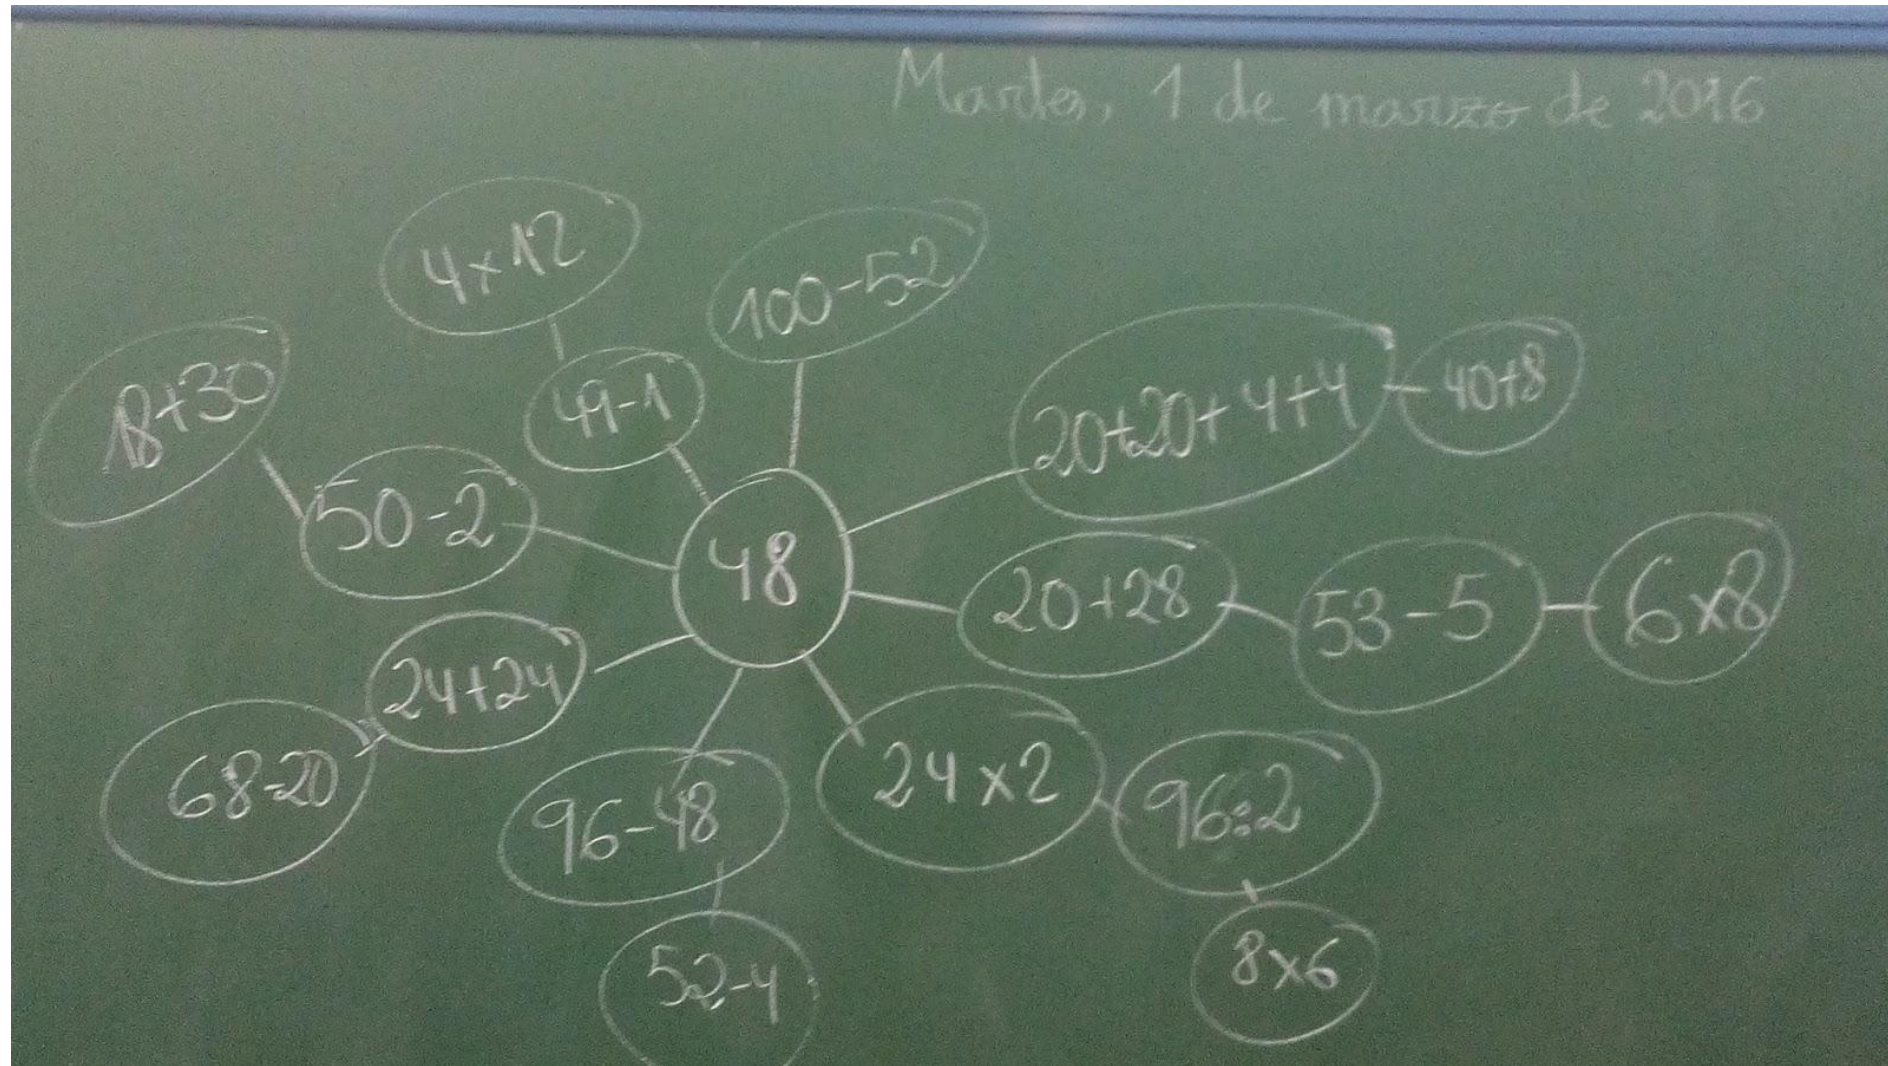 Martes, 1 de marzo de 2016
4x12
100-52
18+30
49-1
20+20+4+4
40+8
50-2
48
20+28
53-5
6x8
24+24
68-20
96-48
24x2
96:2
52-4
8x6